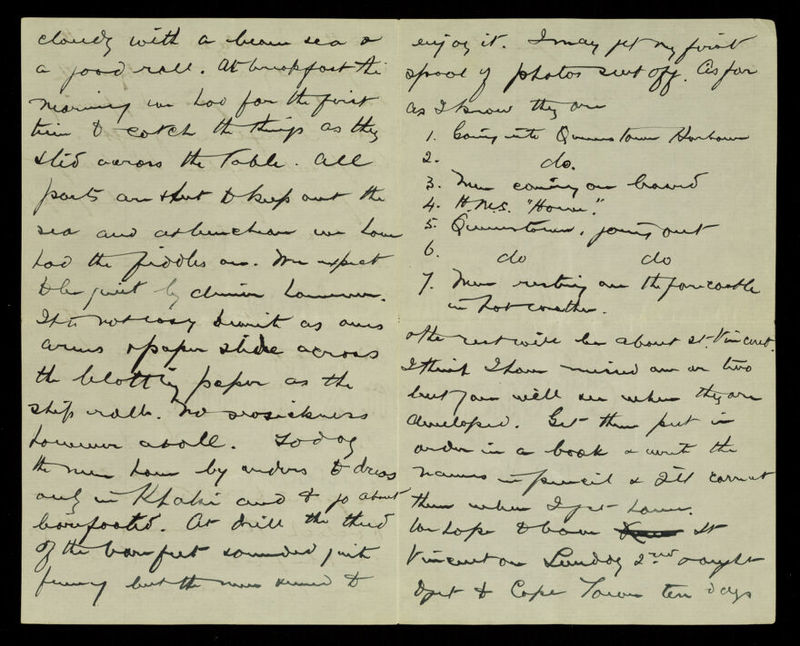 cloudy with a beam sea &
a good roll. At breakfast this
morning we had for the first
time to catch the things as they
slid across the table. All
ports are shut to keep out the
sea and at luncheon we have
had the fiddles on. We expect
to be quiet by dinner however.
It is not easy to write as ones
arms & paper slide across
the blotting paper as the
ship rolls. No seasickness
however at all. Today
the men have by orders to dress
only in Khaki and to go about
barefooted. At drill the thud
of the bare feet sounded quite
funny but the men seemed to
enjoy it. I may get my first
spool of photos sent off. As far
as I know they are
1. Going into Queenstown Harbour
2. do.
3. Men coming on board
4. H.M.S. "Howe".
5. Queenstown, going out
6. do do
7. Men resting on the forecastle
in hot weather.
the rest will be about St. Vincent.
I think I have missed one or two
but you will see when they are
developed. Get them put in
order in a book & write the
names in pencil & I'll correct
them when I get home.
We hope to leave St
Vincent on Sunday 2nd &
get to Cape Town ten days